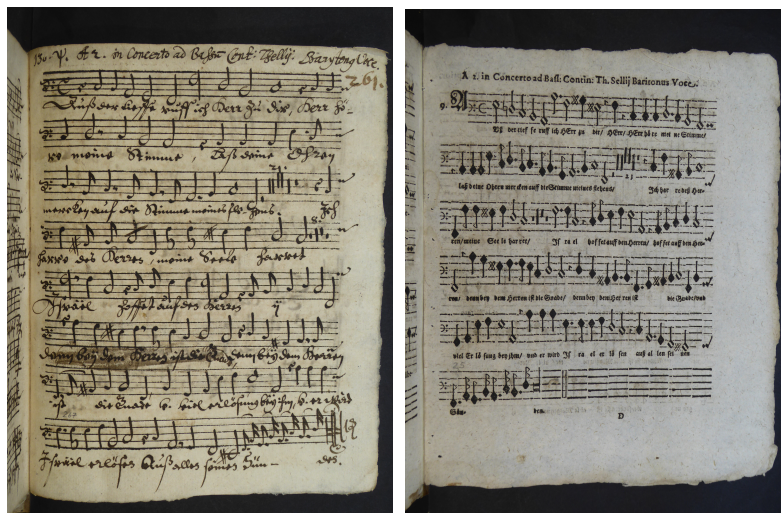 A 2. in Concerto ad Baſſ: Contin:
261.
Auß der tieffe ruff ich Herr zu dir, Herr hö-
re meine Stimme, Laß deine Ohren
mercken auff die Stimme meines flehens. Ich
harre des Herren, meine Seele harret
Israel hoffet auf den Herren ij
denn bey dem Herren ist die Gnade, denn bey dem Herren
ist die Gnade v. viel erlösung bey ihm, v. er wird
Israel erlösen Auß allen seinen Sün- den.
A 2. in Concerto ad Baſſ: Contin: Th. Sellij Baritonus Voce.
9. AUß der tief fe rieff ich HErr zu dir/ HErr/ HErr hö re mei ne Stimme/
laß deine Ohren mer cken auff die Stimme meines flehens/ Ich har re deß Her-
ren/ meine See le har ret/ Iſ ra el hof fet auff den Herren/ hof fet auff den Her-
ren/ denn bey dem Herren iſt die Gnade/ denn bey dem Her ren iſt die Gnade/ und
viel Er lö ſung bey ihm/ und er wird Iſ ra el er lö ſen auß al len ſei nen
Sün- den.
D